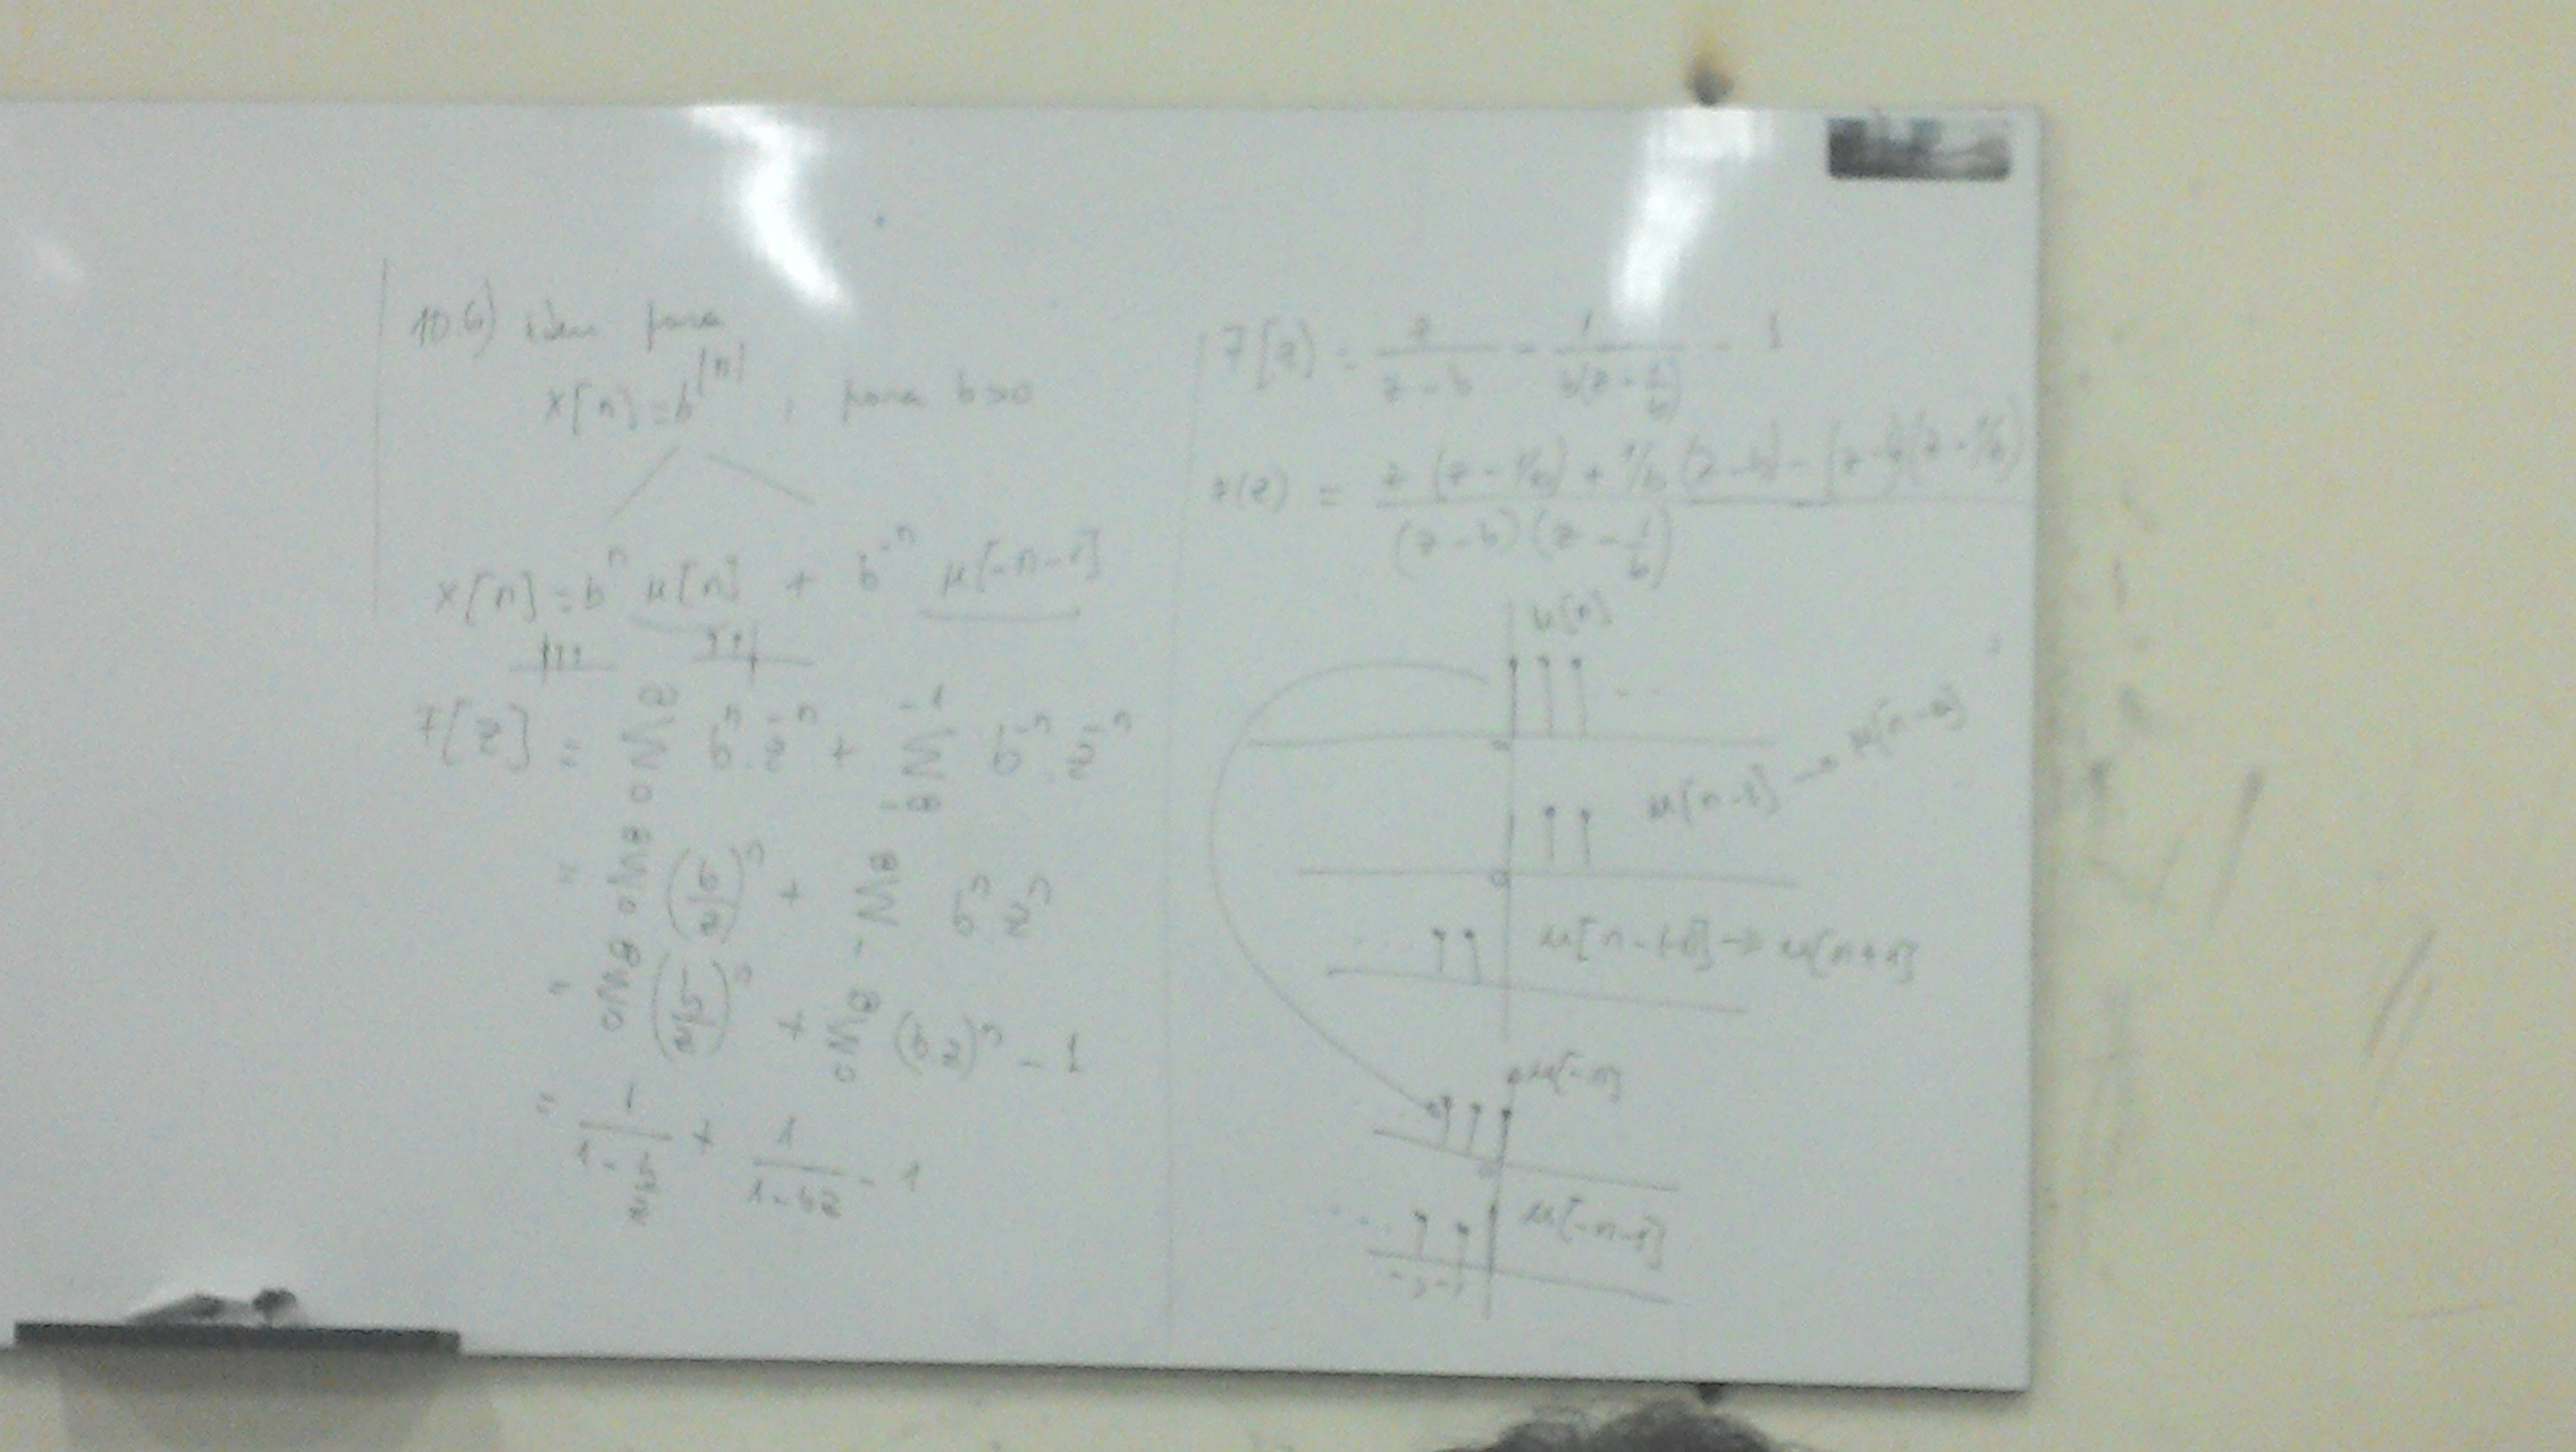 10.6) idem para
x[n] = b^|n| , para b>0
x[n] = b^n μ[n] + b^-n μ[-n-1]
7[z] = ∞ Σ 0 b^n . z^-n + -1 Σ -∞ b^-n . z^-n
= ∞ Σ 0 (b/z)^n + ∞ Σ 1 b^n z^n
= ∞ Σ 0 (b/z)^n + ∞ Σ 0 (bz)^n - 1
= 1/(1 - b/z) + 1/(1 - bz) - 1
7[z) = z/(z-b) - 1/(b(z - 1/b)) - 1
z (z - 1/b) + 1/b (z-b) - (z-b)(z - 1/b)
(z-b)(z - 1/b)
u[n]
0
u[n-1] →
0
u[n-(-1)] → u[n+1]
u[-n]
u[-n-1]
-2 -1